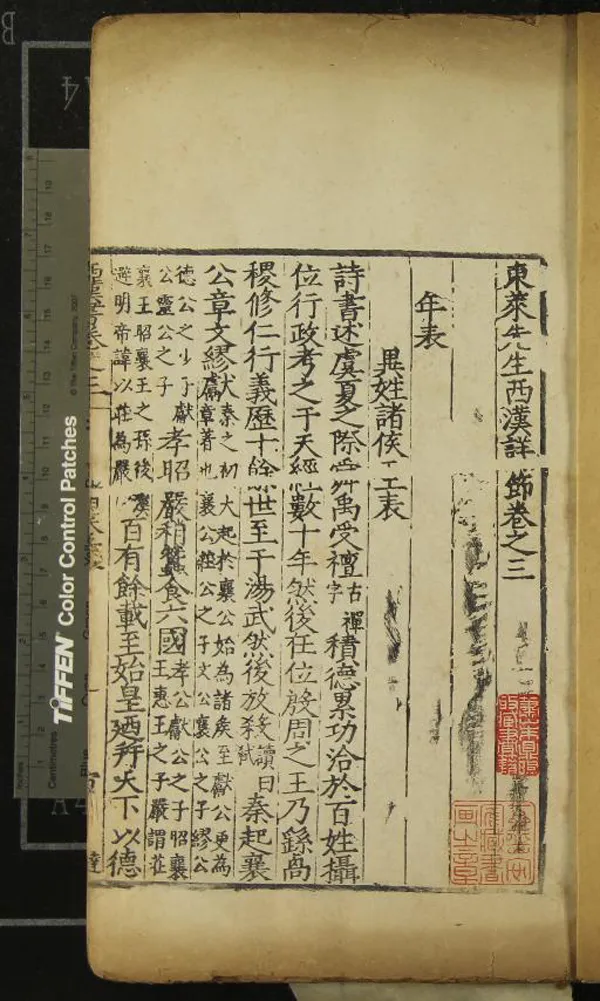 東萊先生西漢詳節卷之三
年表
異姓諸侯王表
詩書述虞夏之際舜禹受禪古禪字積德累功洽於百姓攝
位行政考之于天經數十年然後在位殷周之王乃繇卨
稷修仁行義歷十餘世至于湯武然後放殺讀曰弑秦起襄
公章文繆獻秦之初大起於襄公始為諸矦至獻公更為
屬章著也襄公莊公之子文公襄公之子繆公
德公之少子獻公靈公之子孝昭嚴稍蠶食六國孝公獻公之子昭襄
王惠王之子嚴謂莊
襄王昭襄王之孫後漢
避明帝諱以莊為嚴百有餘載至始皇廼幷天下以德
TIFFEN Color Control Patches
© The Tiffen Company, 2007
Centimetres
Inches
A4
B